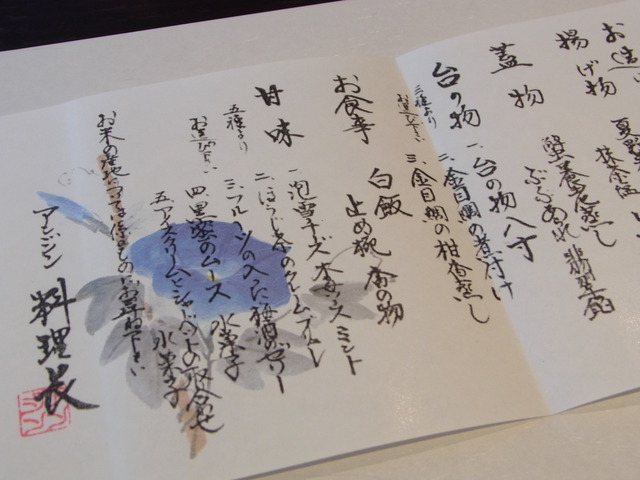 お造り
揚げ物 夏野
抹茶塩
蓋物 蟹養老蒸し
ぶぶあられ 翡翠
台の物 一、台の物八寸
三種より 二、金目鯛の煮付け
お選び下さい 三、金目鯛の柑香蒸し
お食事 白飯
止め椀 香の物
甘味 一、泡雪チーズ ソース ミント
五種より 二、ほうじ茶のクレームブリュレ
お選び下さい 三、フルーツの入った梅酒のゼリー
四、黒蜜のムース 氷菓子
五、アイスクリームとシャーベットの取合せ
氷菓子
お米の産地については係りの者にお尋ね下さい
アンジン 料理長